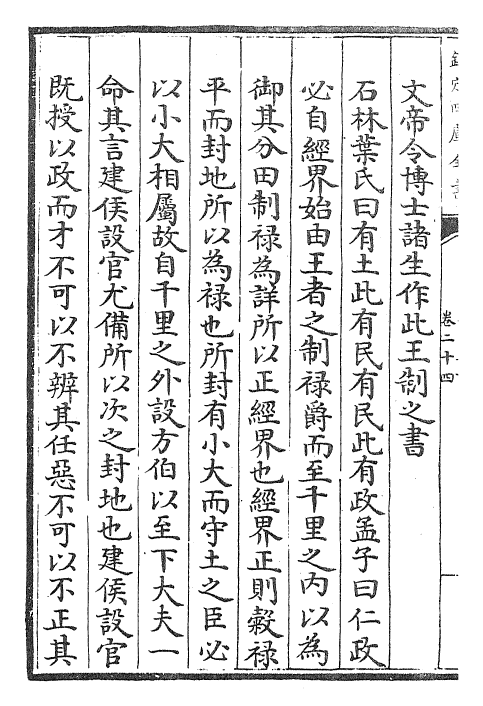 欽定四庫全書
卷二十四
文帝令博士諸生作此王制之書
石林葉氏曰有土此有民有民此有政孟子曰仁政
必自經界始由王者之制祿爵而至千里之內以為
御其分田制祿為詳所以正經界也經界正則穀祿
平而封地所以為祿也所封有小大而守土之臣必
以小大相屬故自千里之外設方伯以至下大夫一
命其言建侯設官尤備所以次之封地也建侯設官
既授以政而才不可以不辨其任惡不可以不正其